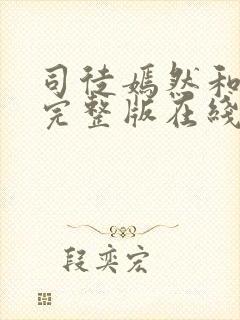 司徒嫣然和
完整版在线
段奕宏